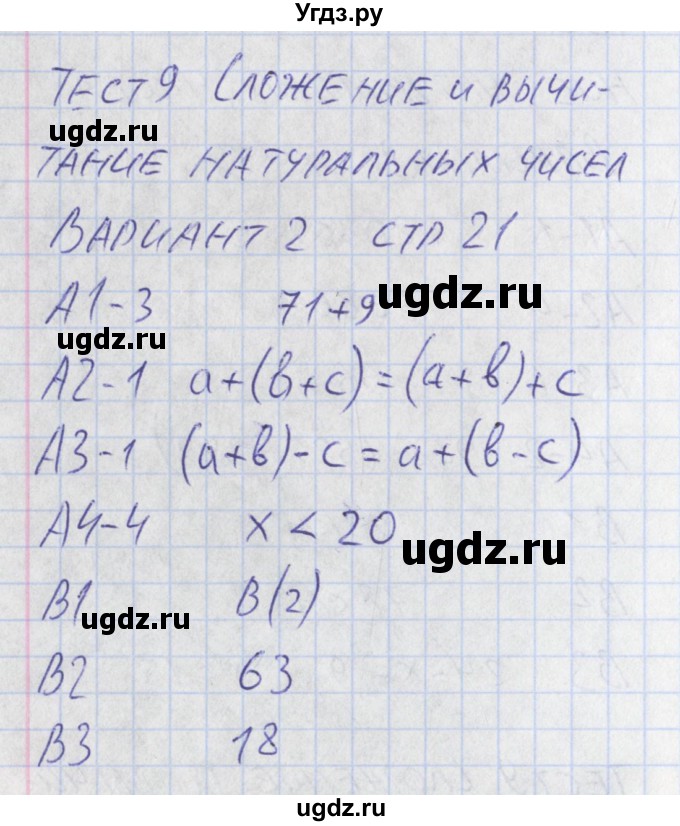 Угдз.ру
ТЕСТ 9 СЛОЖЕНИЕ И ВЫЧИ-
ugdz.ru
ТАНИЕ НАТУРАЛЬНЫХ ЧИСЕЛ
ВАРИАНТ 2 СТР 21
А1-3 71+9
ugdz.ru
ugdz.ru
А2-1 a+(в+c)=(a+в)+c
А3-1 (a+в)-c=a+(в-c)
А4-4 x<20
ugdz.ru
В1 В(2)
ugdz.ru
В2 63
В3 18
ugdz.ru